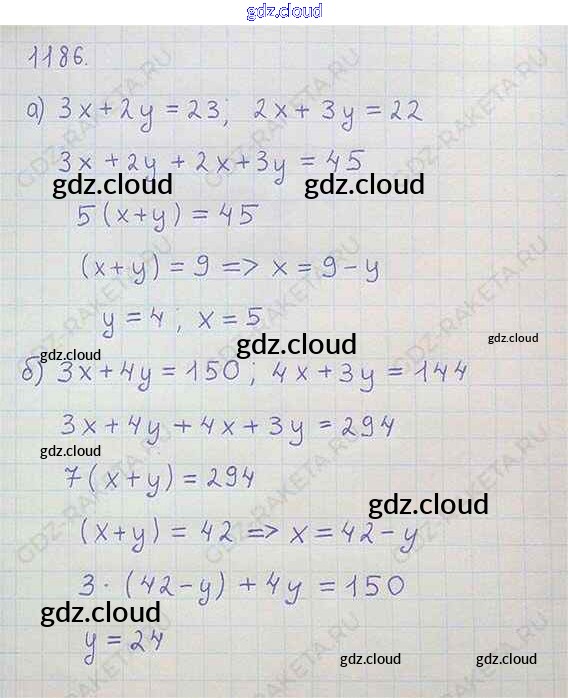 gdz.cloud
1186.
а) 3x + 2y = 23; 2x + 3y = 22
3x + 2y + 2x + 3y = 45
gdz.cloud gdz.cloud
5(x+y) = 45
(x+y) = 9 => x = 9 - y
y = 4; x = 5
gdz.cloud gdz.cloud gdz.cloud
б) 3x + 4y = 150; 4x + 3y = 144
3x + 4y + 4x + 3y = 294
gdz.cloud
7(x+y) = 294
gdz.cloud
(x+y) = 42 => x = 42 - y
3 · (42 - y) + 4y = 150
gdz.cloud
y = 24
gdz.cloud gdz.cloud
GDZ-RAKETA.RU